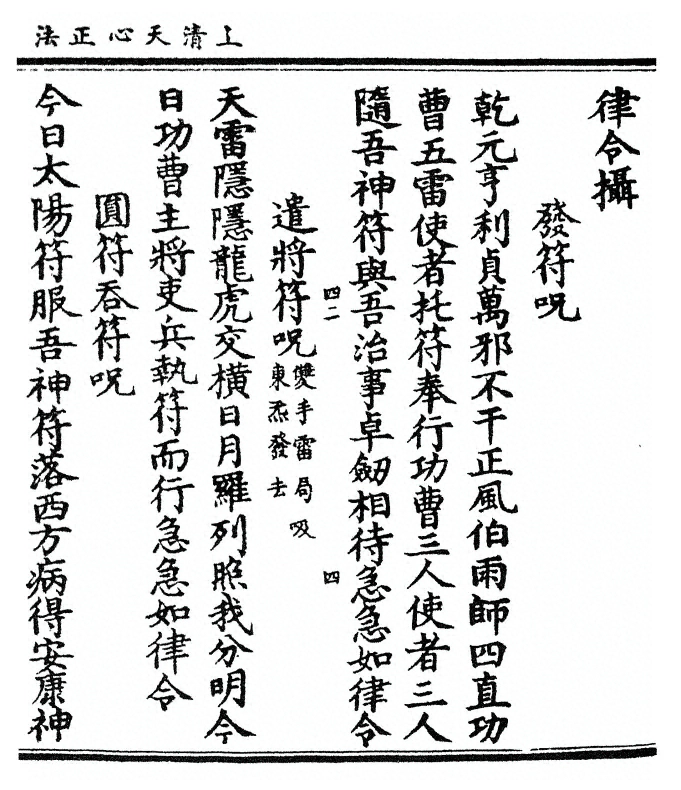 上清天心正法
律令攝
發符呪
乾元亨利貞萬邪不干正風伯雨師四直功
曹五雷使者托符奉行功曹三人使者三人
隨吾神符與吾治事卓劒相待急急如律令
四二
四
遣將符呪雙手雷局吸
東炁發去
天雷隱隱龍虎交橫日月羅列照我分明今
日功曹主將吏兵執符而行急急如律令
圓符吞符呪
今日太陽符服吾神符落西方病得安康神